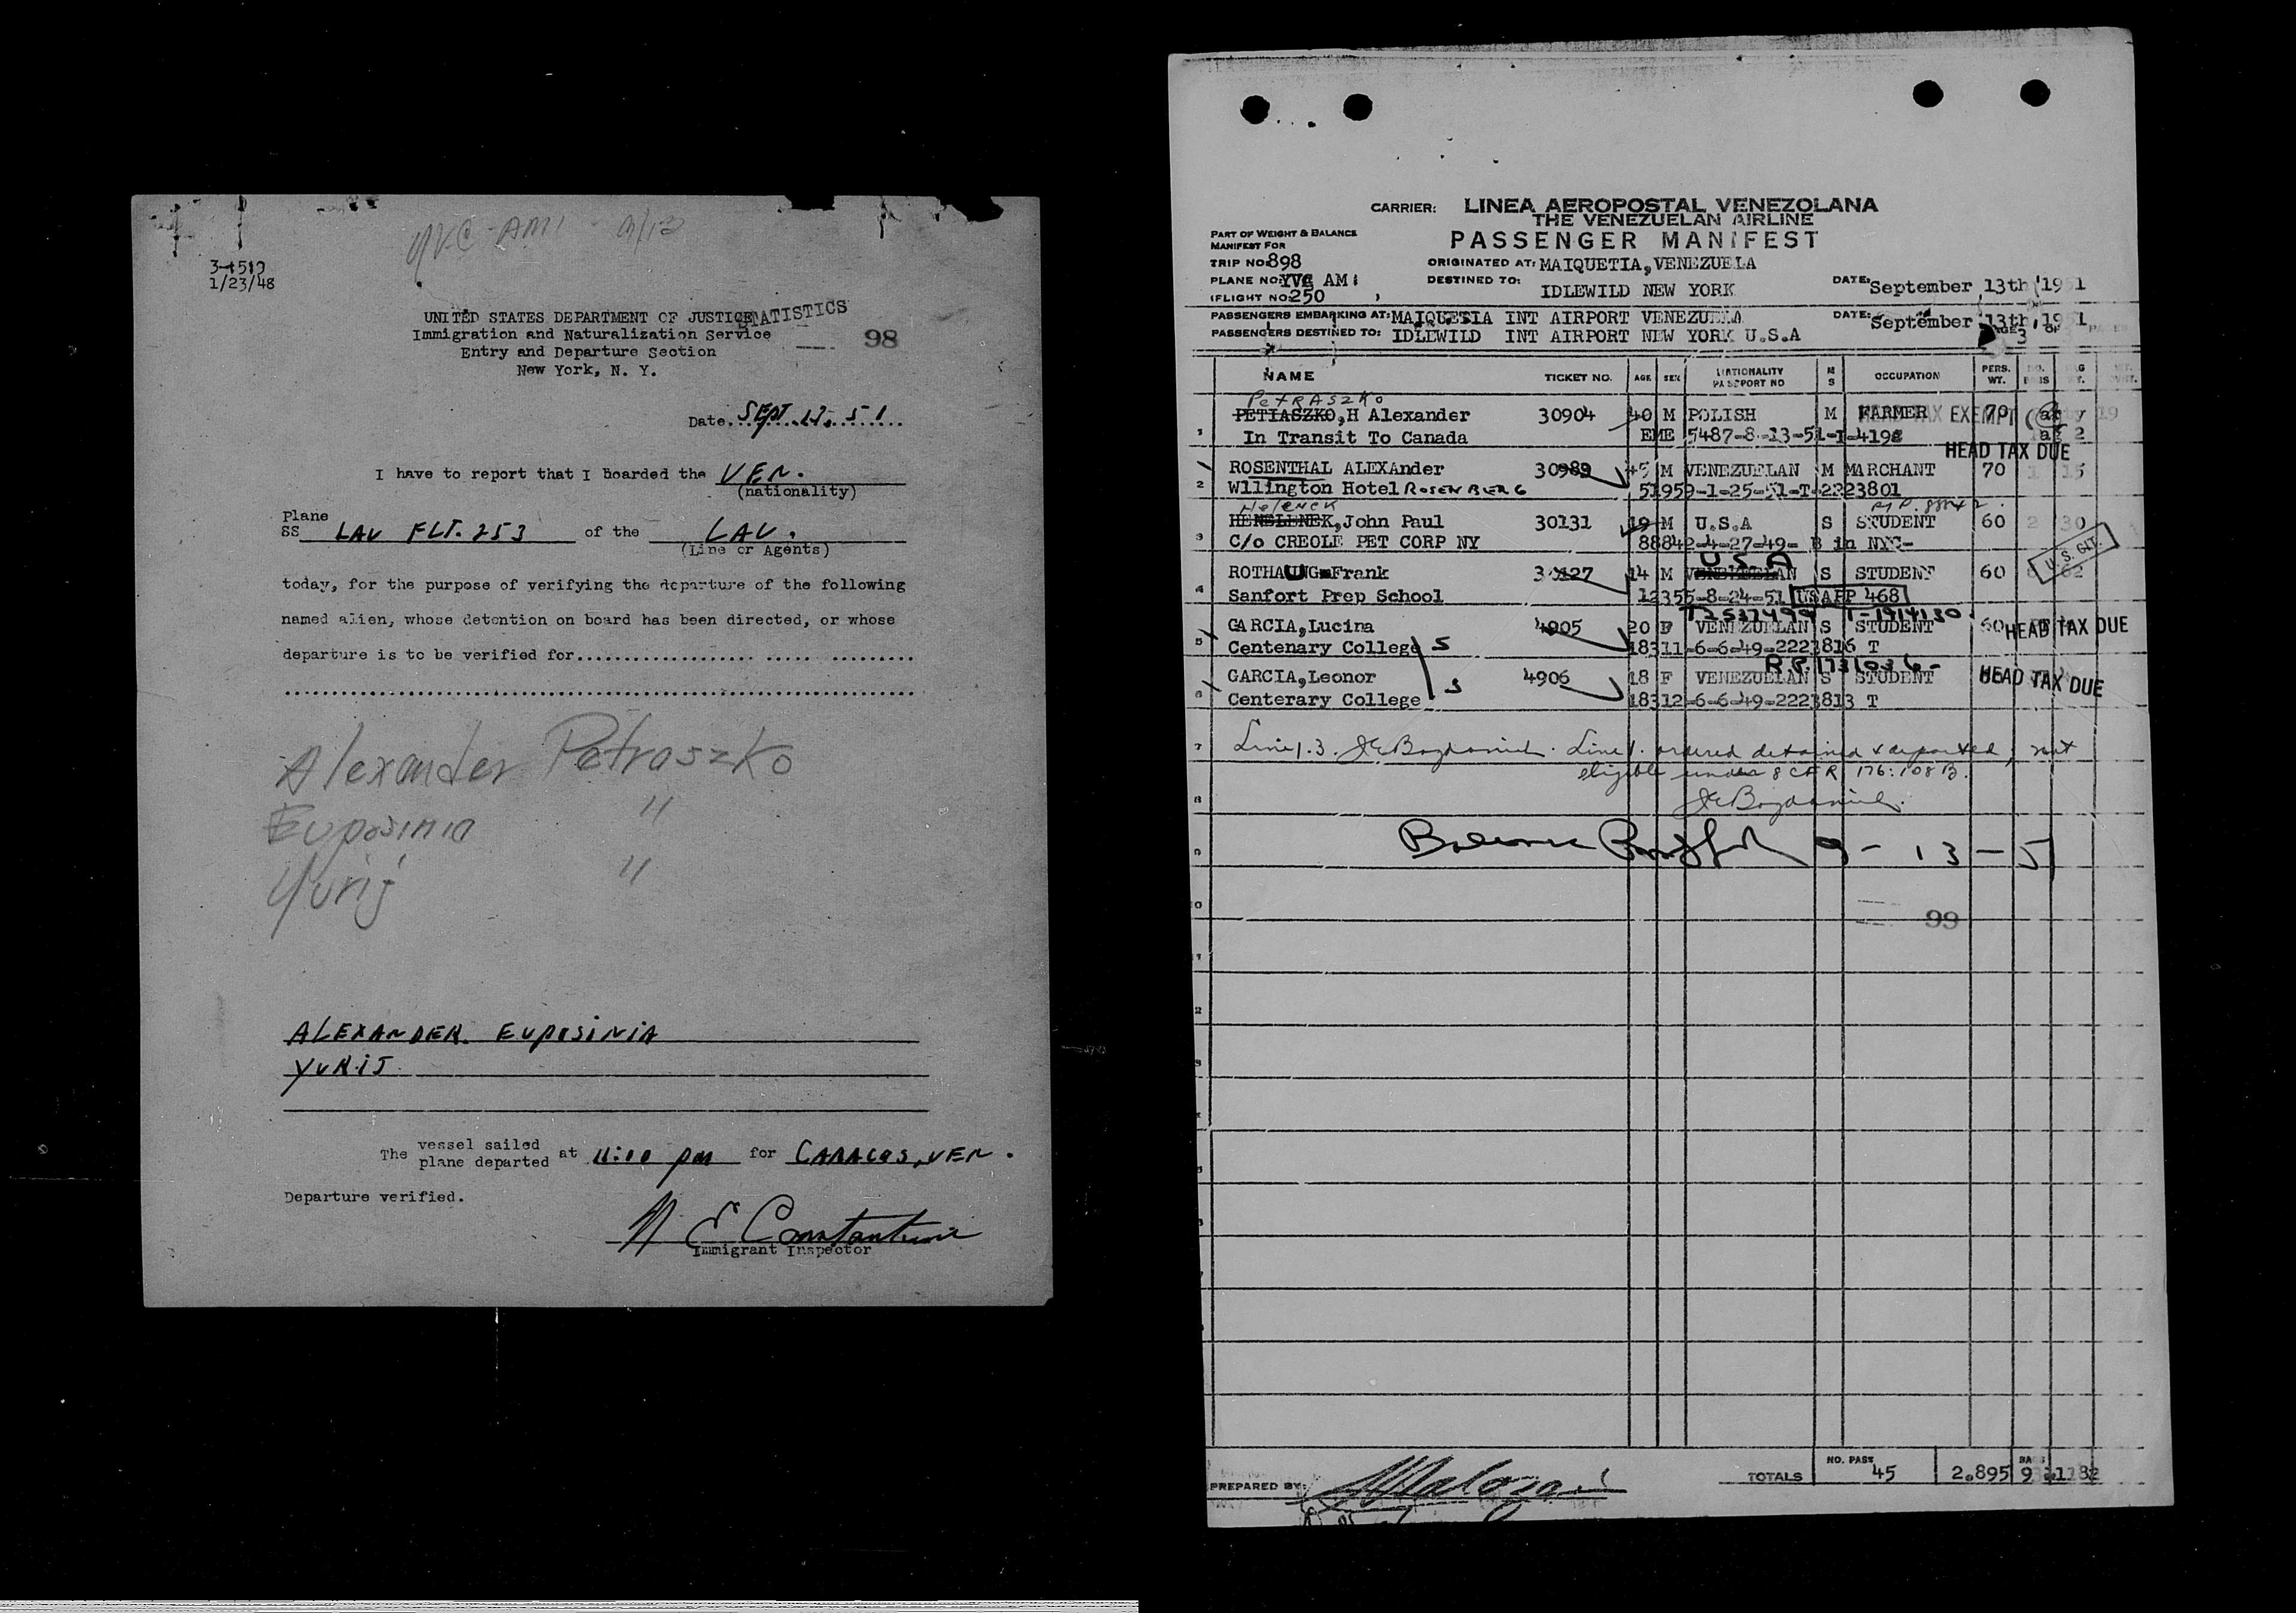 YVC-AM1 - 9/13
3-1519
1/23/48
UNITED STATES DEPARTMENT OF JUSTICE
STATISTICS
Immigration and Naturalization Service
98
Entry and Departure Section
New York, N. Y.
Date..SEPT. 13. 51........
I have to report that I boarded the VEN.
(nationality)
Plane
SS LAV FLT. 253 of the LAV.
(Line or Agents)
today, for the purpose of verifying the departure of the following
named alien, whose detention on board has been directed, or whose
departure is to be verified for
Alexander Petraszko
Euposinia "
Yurij "
ALEXANDER. EUPOSINIA
YURIJ
The vessel sailed
plane departed at 11:10 pm for CARACAS, VEN.
Departure verified.
N E Constantine
Immigrant Inspector
CARRIER: LINEA AEROPOSTAL VENEZOLANA
THE VENEZUELAN AIRLINE
PASSENGER MANIFEST
PART OF WEIGHT & BALANCE
MANIFEST FOR
TRIP NO: 898 ORIGINATED AT: MAIQUETIA, VENEZUELA
PLANE NO: YVC AM1 DESTINED TO: IDLEWILD NEW YORK DATE: September 13th, 1951
FLIGHT NO: 250
PASSENGERS EMBARKING AT: MAIQUETIA INT AIRPORT VENEZUELA DATE: September 13th, 1951
PASSENGERS DESTINED TO: IDLEWILD INT AIRPORT NEW YORK U.S.A 3
NAME TICKET NO. AGE SEX NATIONALITY PASSPORT NO M S OCCUPATION PERS. WT.
PETRASZKO
1 PETIASZKO, H Alexander 30904 40 M POLISH M FARMER 70 HEAD TAX EXEMPT
In Transit To Canada EME 5487-8-13-51-I-4198
HEAD TAX DUE
2 ROSENTHAL ALEXAnder 30989 45 M VENEZUELAN M MARCHANT 70 15
Wllington Hotel ROSENBERG 51959-1-25-51-T-2223801
Helenek P.P. 88842
3 HENELENEK, John Paul 30131 19 M U.S.A S STUDENT 60 30
C/o CREOLE PET CORP NY 88842-4-27-49- B in NYC-
U.S.A U.S. CIT.
4 ROTHAUNG-Frank 30127 14 M VENEZUELAN S STUDENT 60
Sanfort Prep School 12355-8-24-51 USAPP 468
T2537499 T-1914130
5 GARCIA, Lucina 4905 20 F VENEZUELAN S STUDENT 60 HEAD TAX DUE
Centenary College S 18311-6-6-49-2223816 T
R.P. 1731036-
6 GARCIA, Leonor 4906 18 F VENEZUELAN S STUDENT HEAD TAX DUE
Centerary College S 18312-6-6-49-2223813 T
7 Line 1. ordered detained & deported, not
eligible under 8 CFR 176:108 B.
8
9 9-13-51
10
99
PREPARED BY: TOTALS NO. PASS 45 2.895